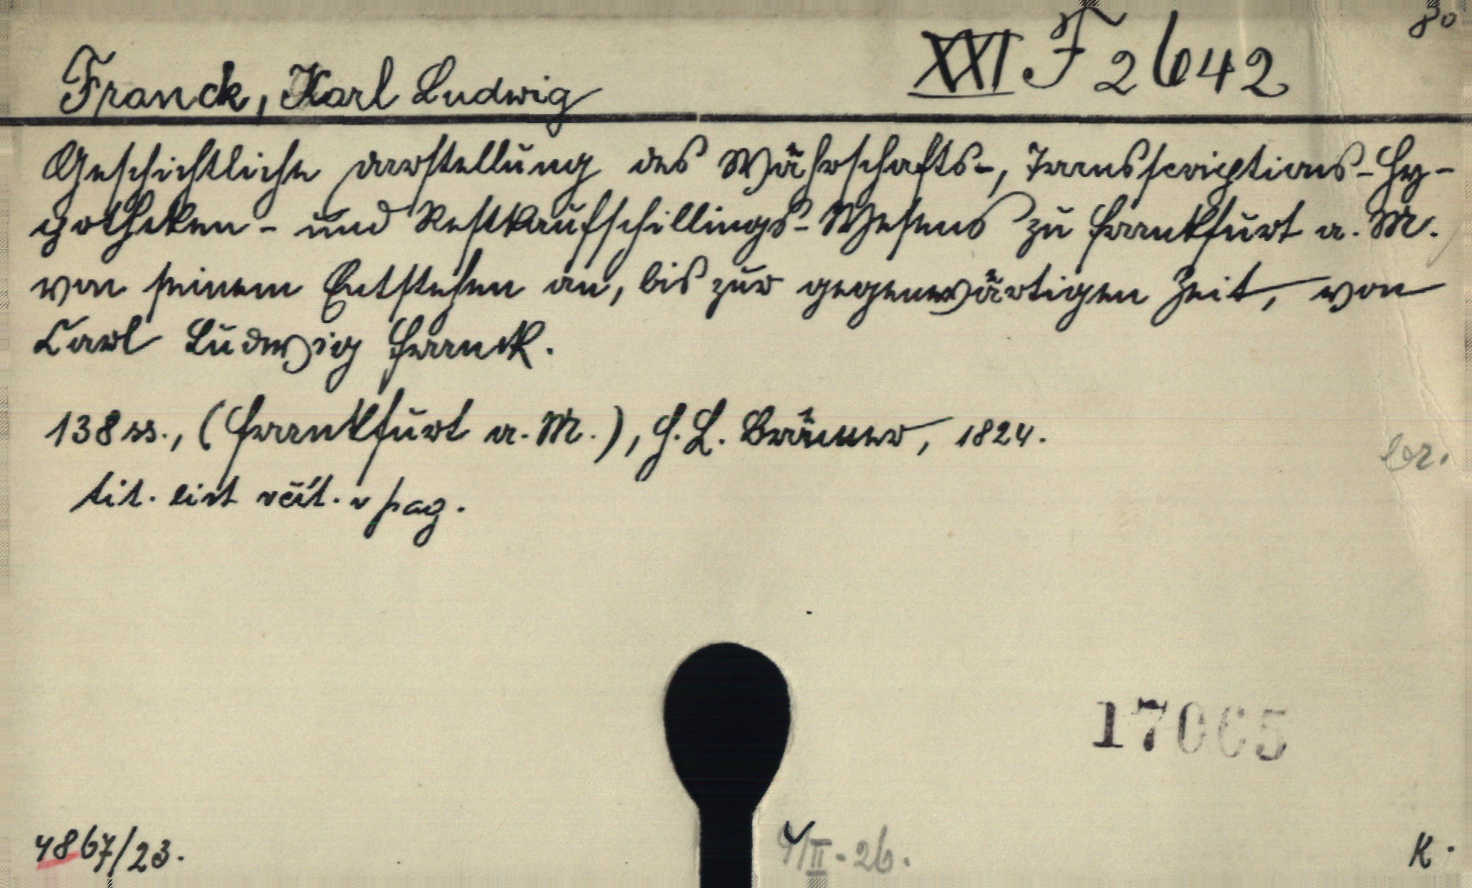 8°
Franck, Karl Ludwig XXI F 2642
Geschichtliche Darstellung des Währschafts-, Transscriptions-Hy-
potheken- und Restkaufschillings-Wesens zu Frankfurt a. M.
von seinem Entstehen an, bis zur gegenwärtigen Zeit, von
Carl Ludwig Franck.
138 ss., (Frankfurt a. M.), H. L. Brönner, 1824.
br.
tit. list v pag.
17065
4867/23.
4/II-26.
K.